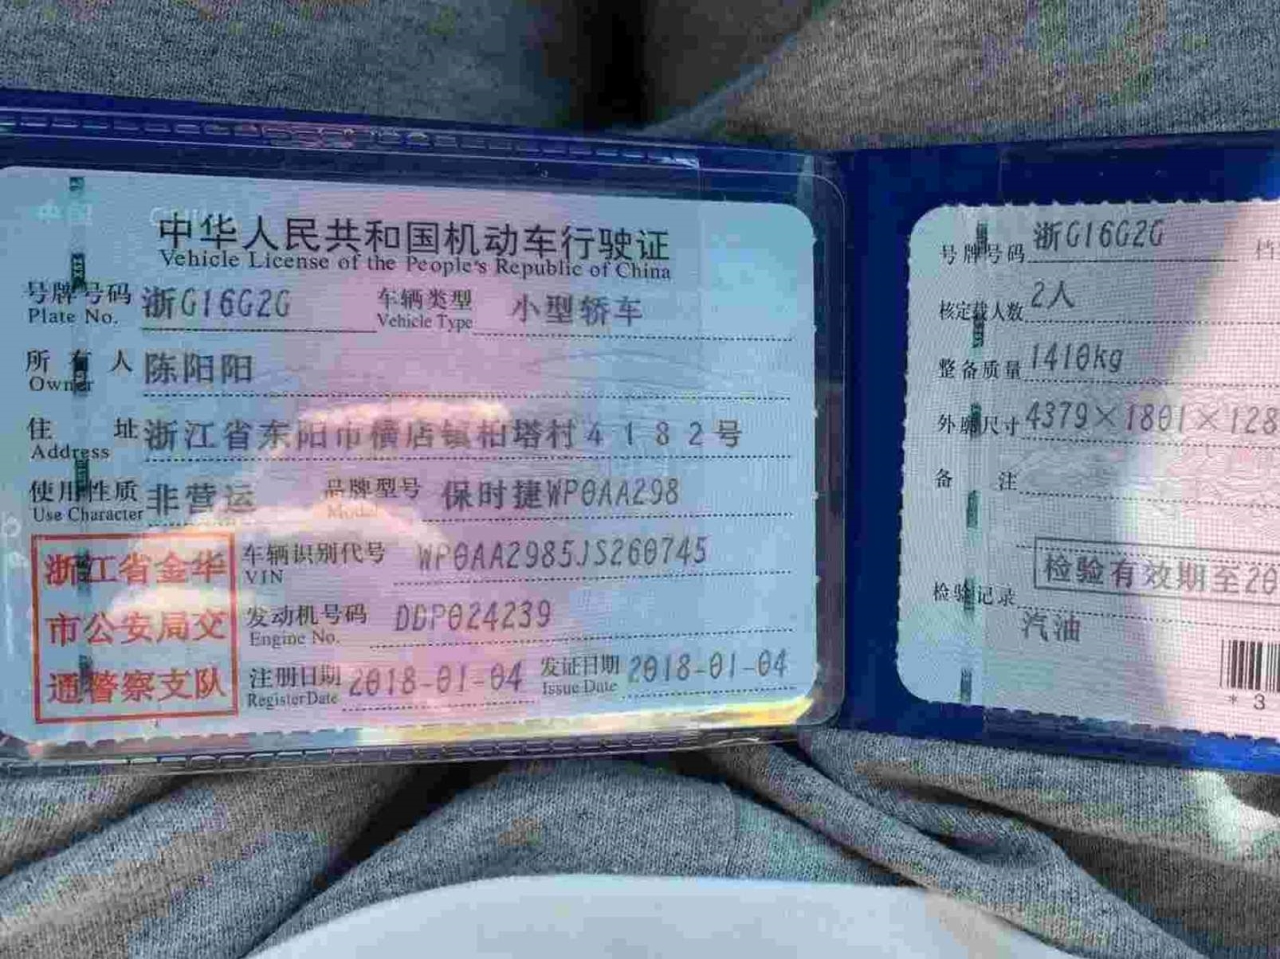 中华人民共和国机动车行驶证
Vehicle License of the People's Republic of China
号牌号码 浙G16G2G 车辆类型 小型轿车
Plate No. Vehicle Type
所有人 陈阳阳
Owner
住址 浙江省东阳市横店镇柏塔村4182号
Address
使用性质 非营运 品牌型号 保时捷WP0AA298
Use Character Model
浙江省金华
市公安局交
通警察支队
车辆识别代号 WP0AA2985JS260745
VIN
发动机号码 DDP024239
Engine No.
注册日期 2018-01-04 发证日期 2018-01-04
Register Date Issue Date
号牌号码 浙G16G2G 档
核定载人数 2人
整备质量 1410kg
外廓尺寸 4379×1801×128
备注
检验有效期至20
检验记录
汽油
*3